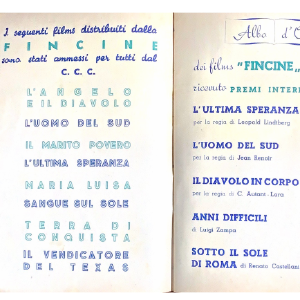 I seguenti films distribuiti dalla
FINCINE
sono stati ammessi per tutti dal
C. C. C.
L'ANGELO
E IL DIAVOLO
L'UOMO DEL SUD
IL MARITO POVERO
L'ULTIMA SPERANZA
MARIA LUISA
SANGUE SUL SOLE
TERRA DI
CONQUISTA
IL VENDICATORE
DEL TEXAS
Albo d'O
dei films "FINCINE„
ricevuto PREMI INTER
L'ULTIMA SPERANZA
per la regia di Leopold Lindtberg
L'UOMO DEL SUD
per la regia di Jean Benoit
IL DIAVOLO IN CORPO
per la regia di C. Autant-Lara
ANNI DIFFICILI
di Luigi Zampa
SOTTO IL SOLE
DI ROMA di Renato Castellani